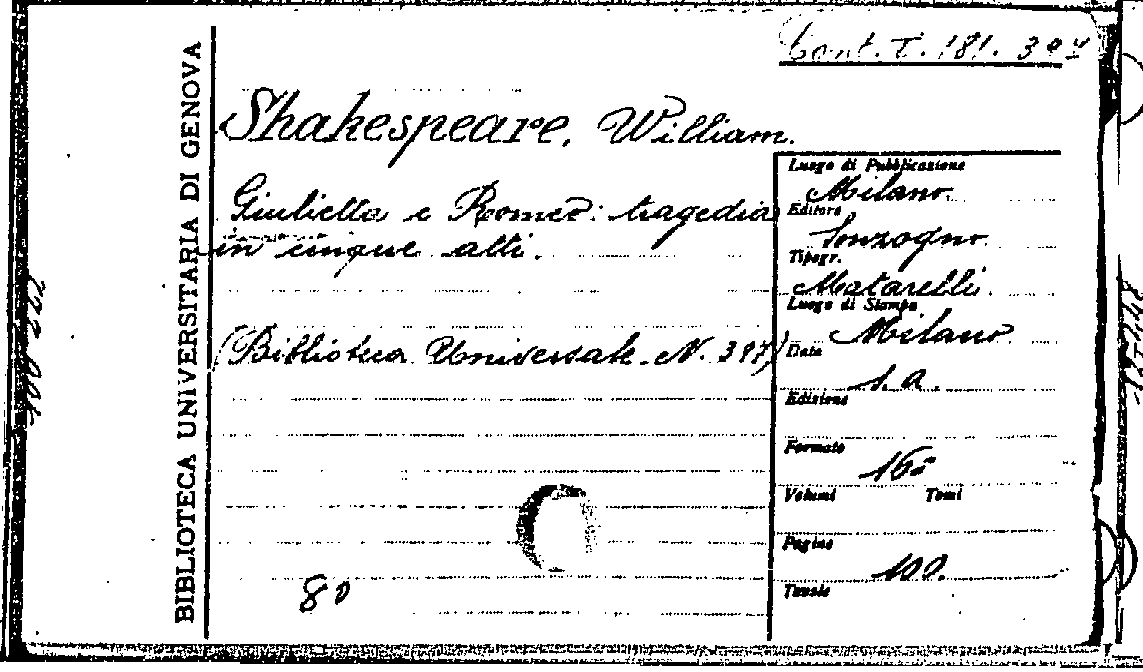 Cont. T. 181. 394
BIBLIOTECA UNIVERSITARIA DI GENOVA
Shakespeare, William.
Giulietta e Romeo: tragedia
in cinque atti.
(Biblioteca Universale N. 397)
80
Luogo di Pubblicazione
Milano.
Editore
Sonzogno.
Tipogr.
Matarelli.
Luogo di Stampa
Milano
Data
s. a.
Edizione
Formato
16º
Volumi Tomi
Pagine
100.
Tavole